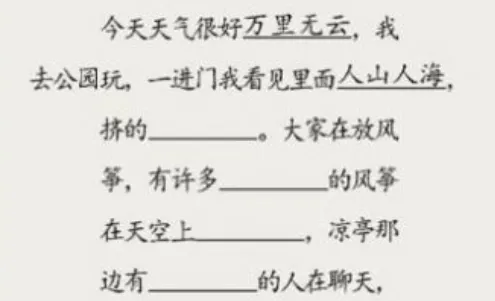 今天天气很好万里无云，我
去公园玩，一进门我看见里面人山人海，
挤的________。大家在放风
筝，有许多________的风筝
在天空上________，凉亭那
边有________的人在聊天，